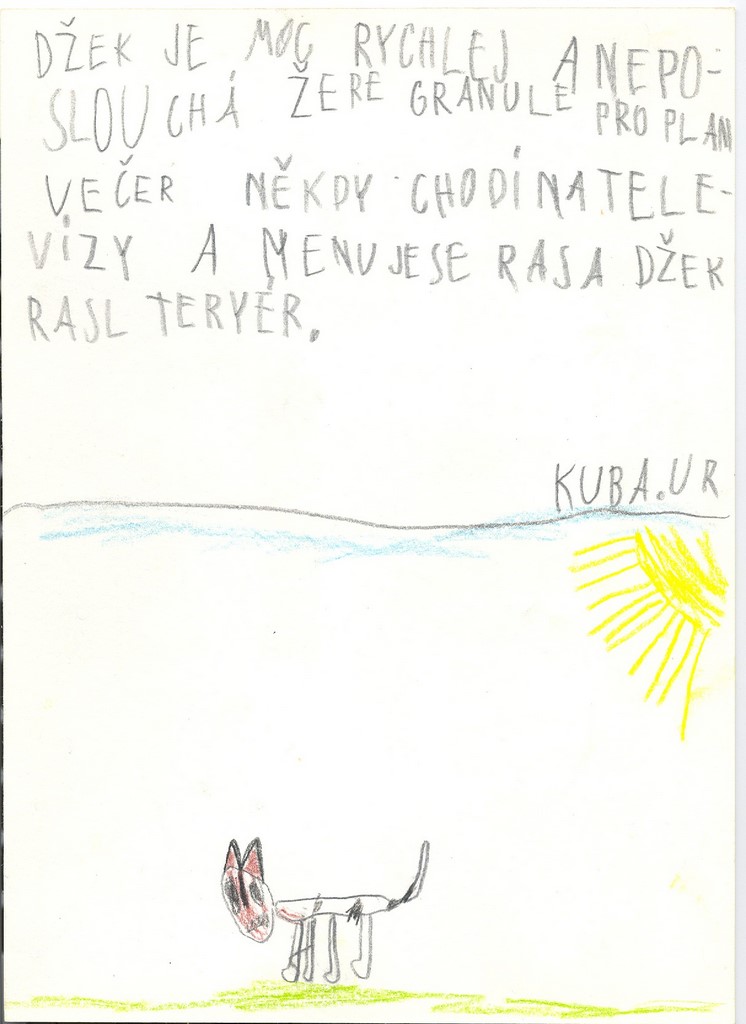 DŽEK JE MOC RYCHLEJ A NEPO-
SLOUCHÁ ŽERE GRANULE PRO PLAN
VEČER NĚKDY CHODÍ NA TELE-
VIZY A MENUJESE RASA DŽEK
RASL TERYÉR.
KUBA.UR